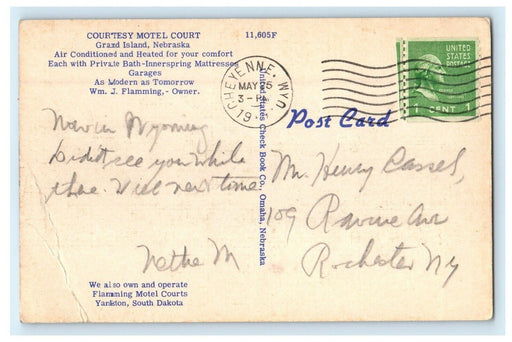 COURTESY MOTEL COURT 11,605F
Grand Island, Nebraska
Air Conditioned and Heated for your comfort
Each with Private Bath-Innerspring Mattresses
Garages
As Modern as Tomorrow
Wm. J. Flamming, - Owner.
CHEYENNE, WYO.
MAY 5
3-PM
UNITED
STATES
POSTAGE
1 CENT 1
Post Card
United States Check Book Co., Omaha, Nebraska
Now in Wyoming
did not see you while
there. Will next time
Mr. Henry Cassel,
109 Ravine Ave
Rochester NY
We also own and operate
Flamming Motel Courts
Yankton, South Dakota